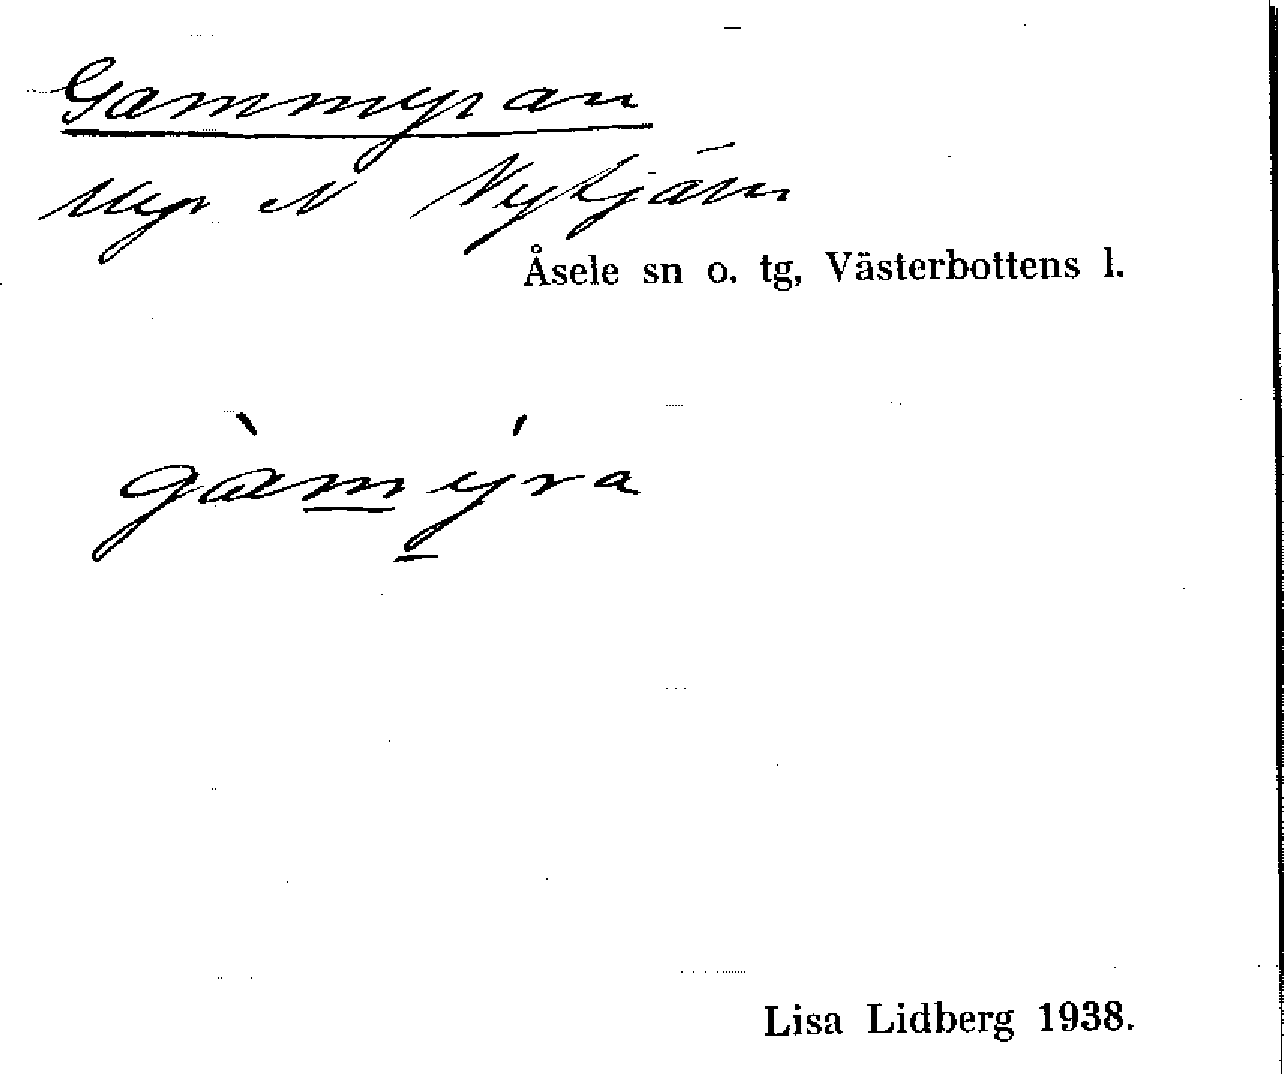 Gammyran
Myr N Nytjärn
Åsele sn o. tg, Västerbottens l.
gàmýra
Lisa Lidberg 1938.